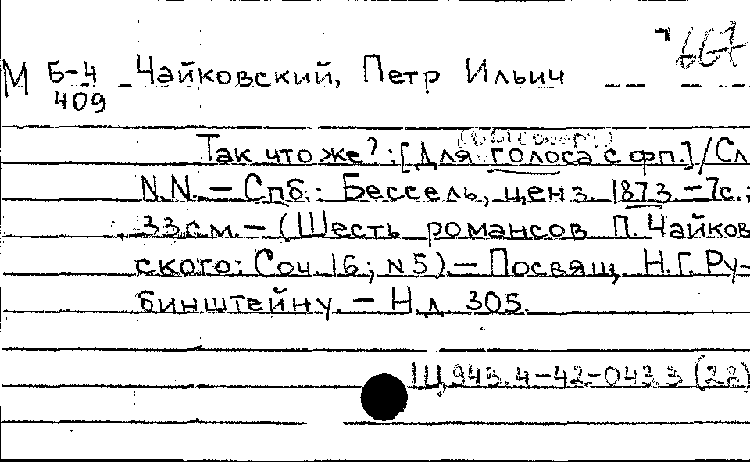 667
М Б-4 Чайковский, Петр Ильич
409
Так что же?: [Для голоса с фп.] / Сл.
N.N. — Спб.: Бессель, ценз. 1873. — 7с.;
33см. — (Шесть романсов П. Чайков
ского: Соч. 16; N5). — Посвящ. Н.Г. Ру-
бинштейну. — Н.д. 305.
Щ943.4-42-043.3 (22)